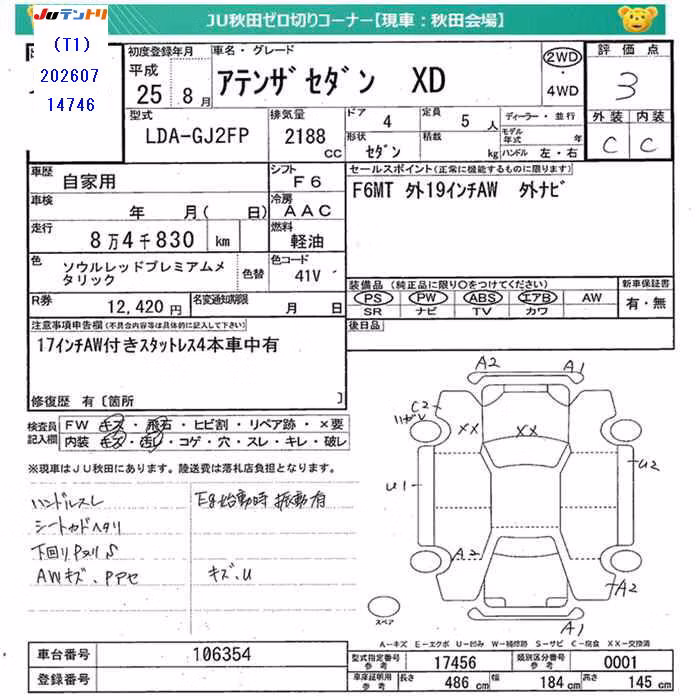 JUテントリ
JU秋田ゼロ切りコーナー【現車：秋田会場】
(T1)
202607
14746
初度登録年月
平成
25 8月
車名・グレード
アテンザセダン XD
2WD
4WD
評価点
3
外装 内装
C C
型式
LDA-GJ2FP
排気量
2188 cc
ドア 4
定員 5人
形状 セダン
積載 kg
ディーラー・並行
モデル年式 年
ハンドル 左・右
車歴 自家用
シフト F6
車検 年 月( 日)
冷房 AAC
走行 8万4千830 km
燃料 軽油
色 ソウルレッドプレミアムメタリック
色替
色コード 41V
R券 12,420円
名変通知期限 月 日
セールスポイント(正常に機能するものに限ります)
F6MT 外19インチAW 外ナビ
装備品(純正品に限り○をつけてください)
PS PW ABS エアB AW
SR ナビ TV カワ
新車保証書
有・無
後日品
注意事項申告欄(不具合内容等は具体的に記入して下さい)
17インチAW付きスタットレス4本車中有
修復歴 有〔箇所 〕
検査員記入欄
FW キズ・飛石・ヒビ割・リペア跡・×要
内装 キズ・汚レ・コゲ・穴・スレ・キレ・破レ
※現車はJU秋田にあります。陸送費は落札店負担となります。
ハンドルスレ
シートカドヘタリ
下回りPヌリ S
AWキズ、PPセ
Eg始動時 振動有
キズ、U
A2 A1
C2
XX XX
U1 U2
A2 A2
A1
スペア
A－キズ E－エクボ U－凹み W－補修跡 S－サビ C－腐食 XX－交換済
車台番号 106354
登録番号
型式指定番号 参考 17456
類別区分番号 参考 0001
車庫証明用 参考 長さ 486 cm 幅 184 cm 高さ 145 cm